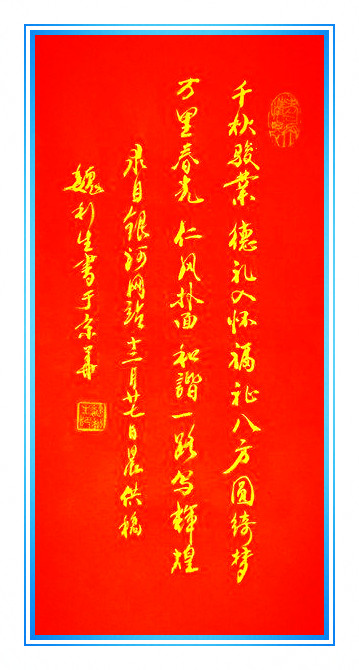 千秋骏業 德礼入怀 福祉八方圆绮梦
万里春光 仁风扑面 和諧一路写輝煌
录自银河网站十二月廿七日晨供稿
魏利生書于京華